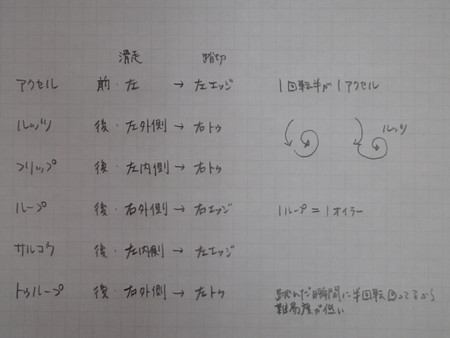 滑走 踏切
アクセル 前・左 → 左エッジ 1回転半が1アクセル
ルッツ 後・左外側 → 右トゥ ルッツ
フリップ 後・左内側 → 右トゥ
ループ 後・右外側 → 右エッジ 1ループ = 1オイラー
サルコウ 後・左内側 → 左エッジ
トゥループ 後・右外側 → 左トゥ 跳んだ瞬間に半回転回ってるから
難易度が低い